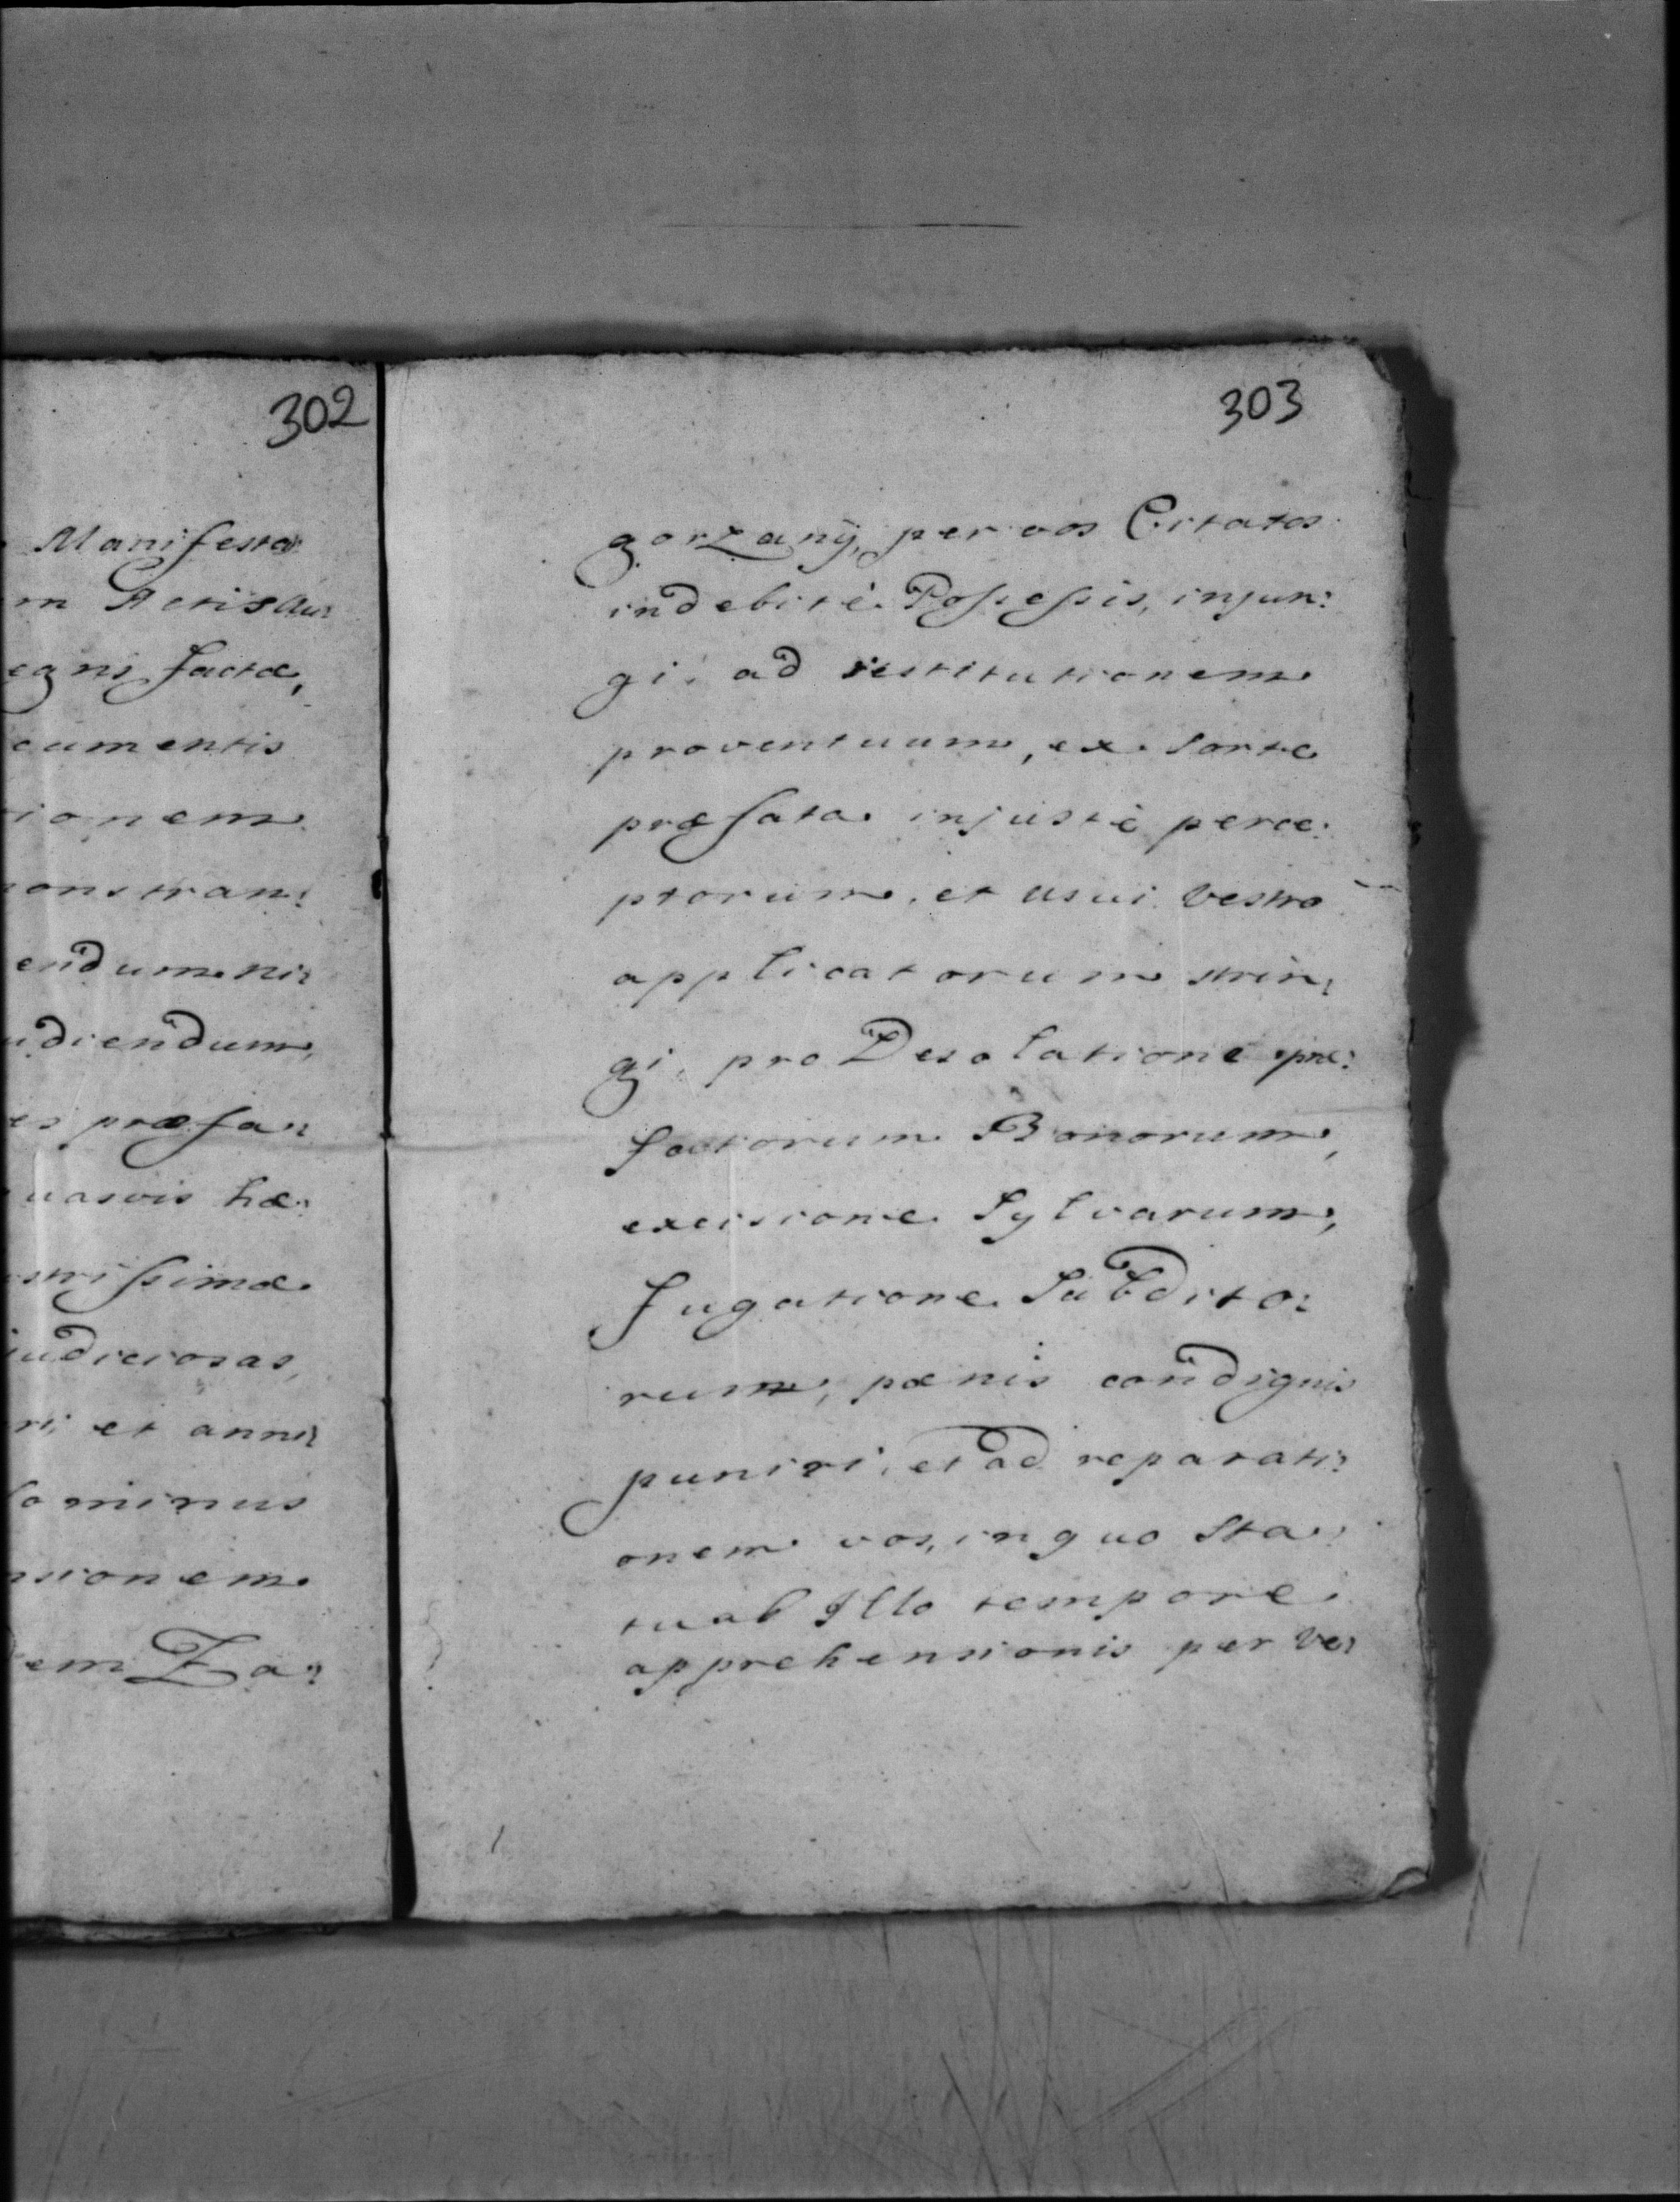 302
Manifesta
m Actis au:
egni facta,
cumentis
ionem
onstran:
endum ni:
udiendum,
es præfa:
uasvis hæ:
strissimæ
iudiciosas,
ri, et anni:
o minus
nsionem
em Za:
303
gorzany, per vos Citatos
indebitè Possessis, injun:
gi, ad restitutionem
proventuum, ex Sorte
præfata injustè perce:
ptorum, et usui vestro
applicatorum strin:
gi, pro Desolatione præ:
factorum Bonorum,
excisione Sylvarum,
fugatione Subdito:
rum, pœnis condignis
puniri, et ad reparati:
onem vos, in quo Sta:
tu ab Illo tempore
apprehensionis per ve: